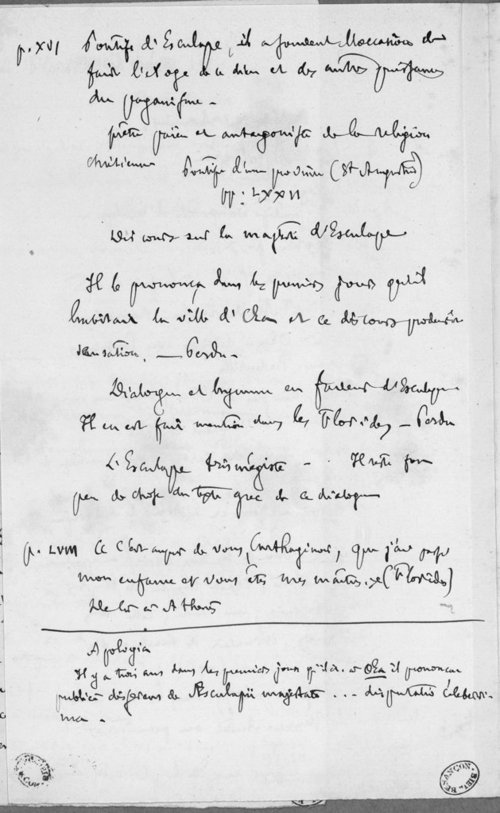 p. XVI Pontife d'Esculape, il a souvent l'occasion de
faire l'éloge de ce dieu et des autres puissances
du paganisme.
prêtre païen et antagoniste de la religion
chrétienne Pontife d'une province (St Augustin)
pp: LXXVI
Discours sur la majesté d'Esculape
Il le prononça dans les premiers jours qu'il
habitait la ville d'Oea et ce discours produisit
sensation. — Perdu.
Dialogue et hymne en faveur d'Esculape.
Il en est fait mention dans les Florides — Perdu
L'Esculape trismégiste - . Il reste fort
peu de chose du texte grec de ce dialogue
p. LVIII C'est auprès de vous, Carthaginois, que j'ai passé
mon enfance et vous êtes mes maîtres. (Florides)
Athènes
Apologia
Il y a trois ans dans les premiers jours qu'il à Oea il prononça
publice disserui de Aesculapii majestate ... disputatio celeberri-
ma.
BESANÇON